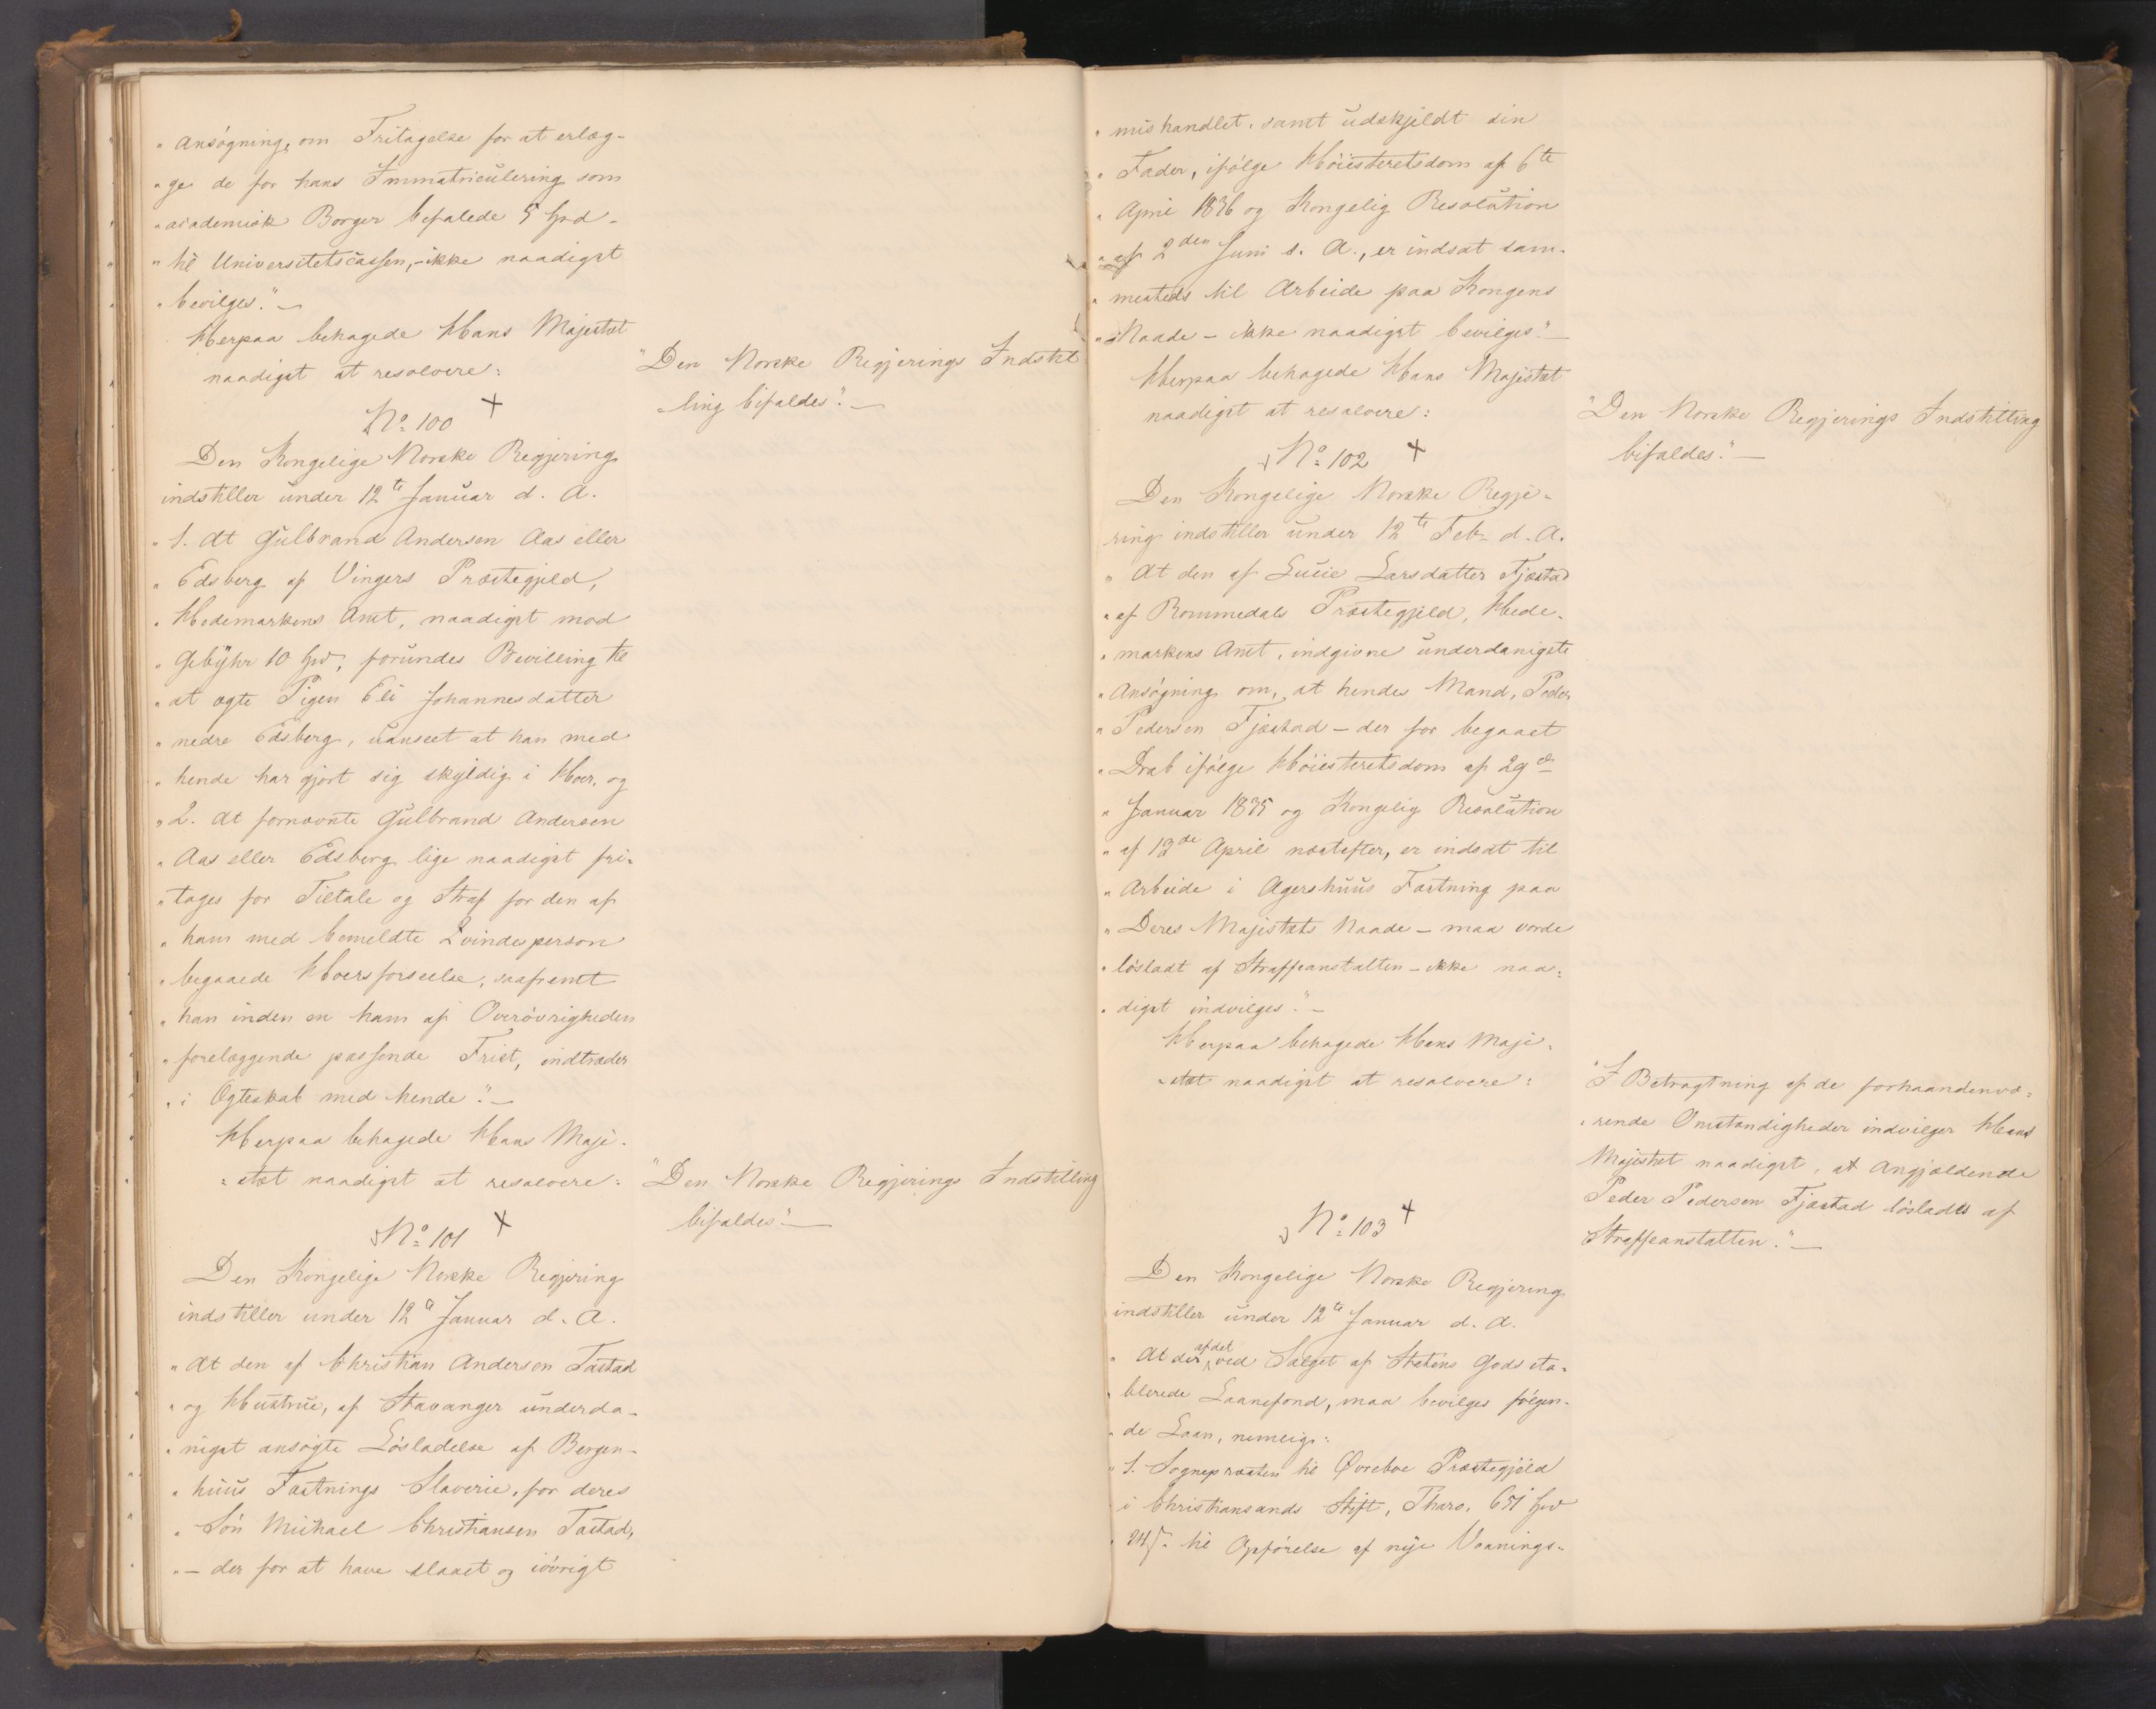 "Ansøgning, om Fritagelse for at erlæg-
"ge de for hans Immatriculering som
"academisk Borger befalede 5 Spd
"til Universitetscassen, - ikke naadigst
"bevilges." -
Herpaa behagede Hans Majestæt
naadigst at resolvere:
"Den Norske Regjerings Indstil
ling bifaldes." -
No: 100 +
Den Kongelige Norske Regjering
indstiller under 12te Januar d. A.
"1. At Gulbrand Andersen Aas eller
"Edsberg af Vingers Præstegjeld,
"Hedemarkens Amt, naadigst mod
"Gebyhr 10 Spd, forundes Bevilling til
"at ægte Pigen Eli Johannesdatter
"nedre Edsberg, uanseet at han med
"hende har gjort sig skyldig i Hoer, og
"2. At fornævnte Gulbrand Andersen
"Aas eller Edsberg lige naadigst fri-
"tages for Tiltale og Straf for den af
"ham med bemeldte Qvindesperson
"begaaede Hoersforseelse, saafremt
"han inden en ham af Overøvrigheden
"forelæggende passende Frist, indtræder
"i Ægteskab med hende." -
Herpaa behagede Hans Maje-
stæt naadigst at resolvere:
"Den Norske Regjerings Indstilling
bifaldes" -
No: 101 +
Den Kongelige Norske Regjering
indstiller under 12te Januar d. A.
"At den af Christian Andersen Tastad
"og Hustrue, af Stavanger underda-
"nigst ansøgte Løsladelse af Bergen-
"huus Fæstnings Slaverie, for deres
"Søn Michael Christiansen Tastad,
" - der for at have slaaet og iøvrigt
"mishandlet, samt udskjeldt sin
"Fader, ifølge Høiesteretsdom af 6te
"April 1836 og Kongelig Resolution
"af 2den Juni s. A., er indsat sam-
"mesteds til Arbeide paa Kongens
"Naade - ikke naadigst bevilges." -
Herpaa behagede Hans Majestæt
naadigst at resolvere:
"Den Norske Regjerings Indstilling
bifaldes." -
No: 102 +
Den Kongelige Norske Regje-
ring indstiller under 12te Feb. d. A.
"At den af Lucie Larsdatter Fjæstad
"af Rommedals Præstegjeld, Hede-
"markens Amt, indgivne underdanigste
"Ansøgning om, at hendes Mand, Peder
"Pedersen Fjæstad - der for begaaet
"Drab ifølge Høiesteretsdom af 29de
"Januar 1835 og Kongelig Resolution
"af 13de April næstefter, er indsat til
"Arbeide i Agershuus Fæstning paa
"Deres Majestæts Naade - maa vorde
"løsladt af Straffeanstalten - ikke naa-
"digst indvilges." -
Herpaa behagede Hans Maje-
stæt naadigst at resolvere:
"I Betragtning af de forhaandenvæ-
rende Omstændigheder indvilger Hans
Majestæt naadigst, at angjældende
Peder Pedersen Fjæstad løslades af
Straffeanstalten." -
No: 103 +
Den Kongelige Norske Regjering
indstiller under 12te Januar d. A.
"At der af det ved Salget af Statens Gods eta-
"blerede Laanefond, maa bevilges følgen-
"de Laan, nemlig:
"1. Sognepræsten til Øvrebøe Præstegjeld
i Christiansands Stift, Tharo, 651 Spd
24 s. til Opførelse af nye Vaanings-